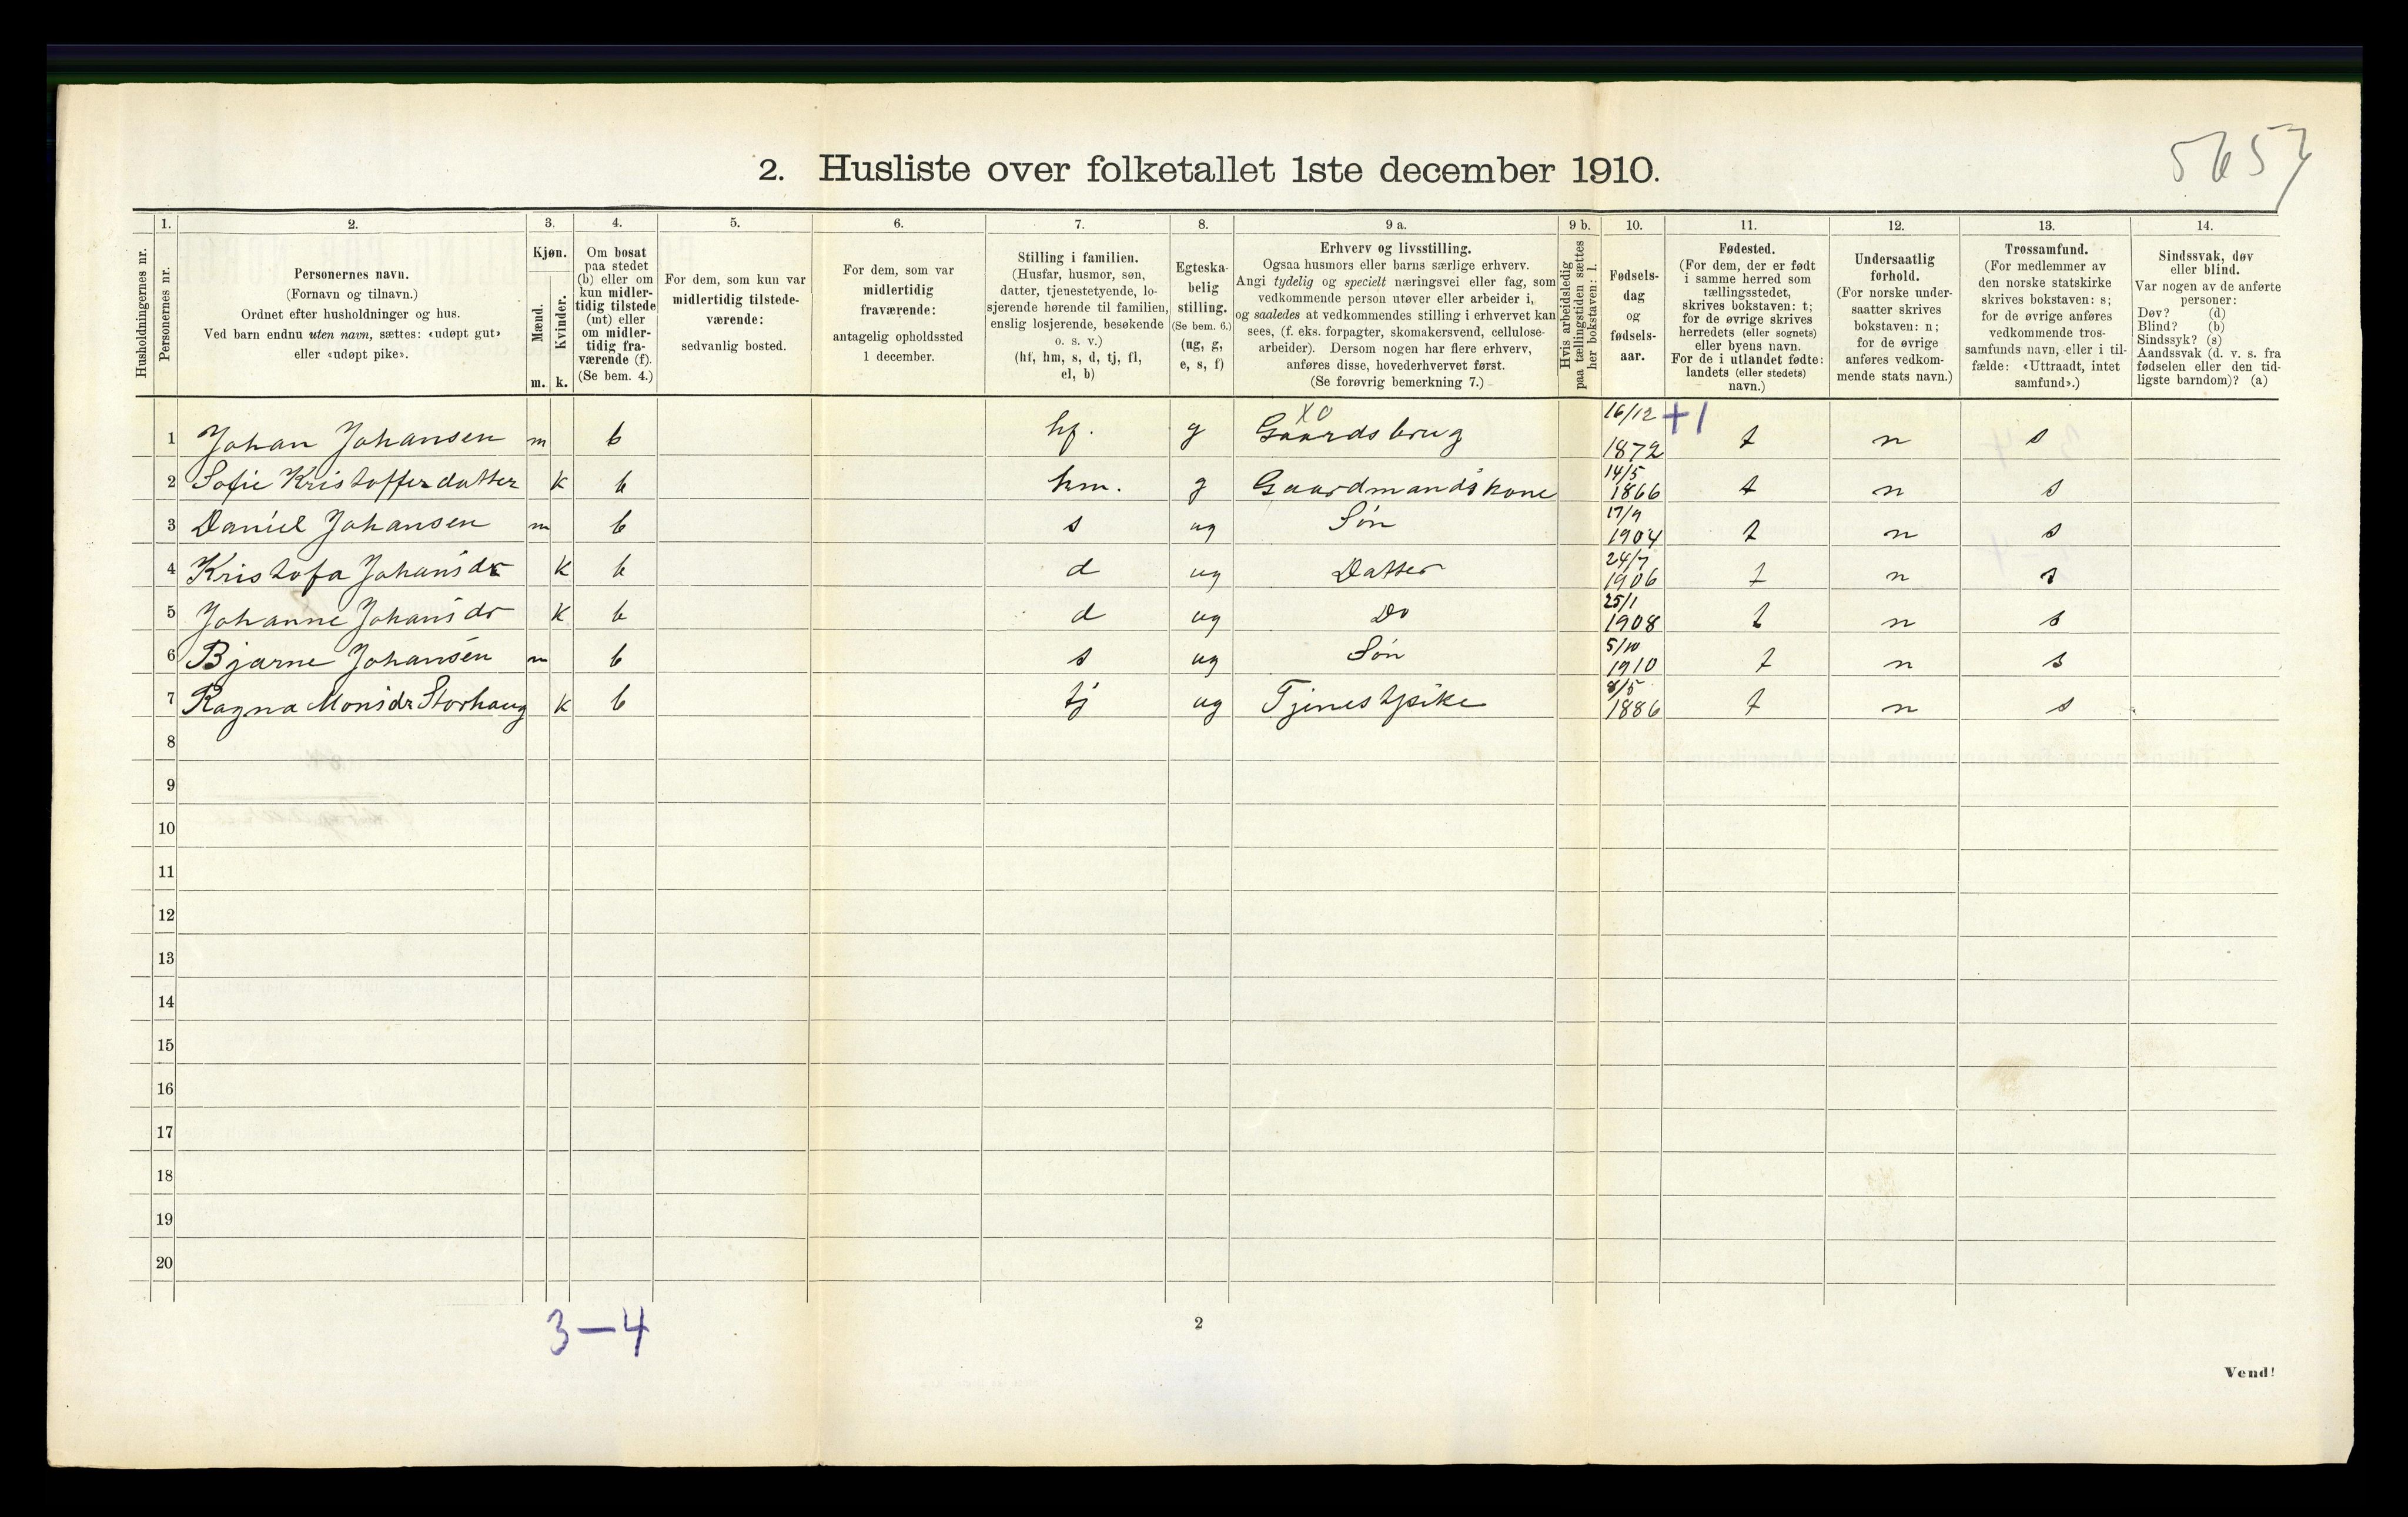 5657
2. Husliste over folketallet 1ste december 1910.
1. 2. 3. 4. 5. 6. 7. 8. 9 a. 9 b. 10. 11. 12. 13. 14.
Husholdningernes nr.
Personernes nr.
Personernes navn.
(Fornavn og tilnavn.)
Ordnet efter husholdninger og hus.
Ved barn endnu uten navn, sættes: «udøpt gut»
eller «udøpt pike».
Kjøn.
Mænd.
Kvinder.
m. k.
Om bosat
paa stedet
(b) eller om
kun midler-
tidig tilstede
(mt) eller
om midler-
tidig fra-
værende (f).
(Se bem. 4.)
For dem, som kun var
midlertidig tilstede-
værende:
sedvanlig bosted.
For dem, som var
midlertidig
fraværende:
antagelig opholdssted
1 december.
Stilling i familien.
(Husfar, husmor, søn,
datter, tjenestetyende, lo-
sjerende hørende til familien,
enslig losjerende, besøkende
o. s. v.)
(hf, hm, s, d, tj, fl,
el, b)
Egteska-
belig
stilling.
(Se bem. 6.)
(ug, g,
e, s, f)
Erhverv og livsstilling.
Ogsaa husmors eller barns særlige erhverv.
Angi tydelig og specielt næringsvei eller fag, som
vedkommende person utøver eller arbeider i,
og saaledes at vedkommendes stilling i erhvervet kan
sees, (f. eks. forpagter, skomakersvend, cellulose-
arbeider). Dersom nogen har flere erhverv,
anføres disse, hovederhvervet først.
(Se forøvrig bemerkning 7.)
Hvis arbeidsledig
paa tællingstiden sættes
her bokstaven: l.
Fødsels-
dag
og
fødsels-
aar.
Fødested.
(For dem, der er født
i samme herred som
tællingsstedet,
skrives bokstaven: t;
for de øvrige skrives
herredets (eller sognets)
eller byens navn.
For de i utlandet fødte:
landets (eller stedets)
navn.)
Undersaatlig
forhold.
(For norske under-
saatter skrives
bokstaven: n;
for de øvrige
anføres vedkom-
mende stats navn.)
Trossamfund.
(For medlemmer av
den norske statskirke
skrives bokstaven: s;
for de øvrige anføres
vedkommende tros-
samfunds navn, eller i til-
fælde: «Uttraadt, intet
samfund».)
Sindssvak, døv
eller blind.
Var nogen av de anførte
personer:
Døv? (d)
Blind? (b)
Sindssyk? (s)
Aandssvak (d. v. s. fra
fødselen eller den tid-
ligste barndom)? (a)
X0 16/12 +1
1 Johan Johansen m b hf. g Gaardsbrug 1872 t n s
14/5
2 Sofie Kristofferdatter k b hm. g Gaardmandskone 1866 t n s
17/9
3 Daniel Johansen m b s ug Søn 1904 t n s
24/7
4 Kristofa Johansdr k b d ug Datter 1906 t n s
25/1
5 Johanne Johansdr k b d ug Do 1908 t n s
5/10
6 Bjarne Johansen m b s ug Søn 1910 t n s
8/5
7 Ragna Monsdr Storhaug k b tj ug Tjenestpike 1886 t n s
8
9
10
11
12
13
14
15
16
17
18
19
20
3-4
2
Vend!